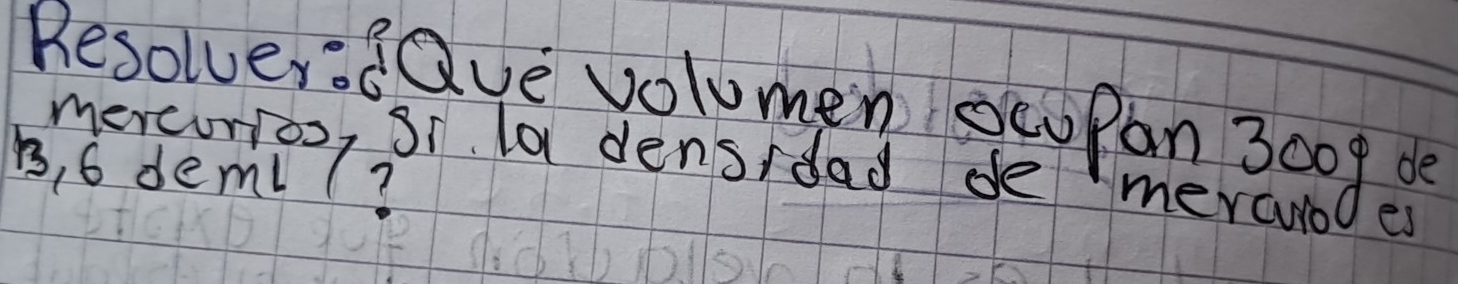 Resolver: ¿Qué volumen ocupan 300g de
mercurios, si la densidad de mercurio es
13,6 deml / ?